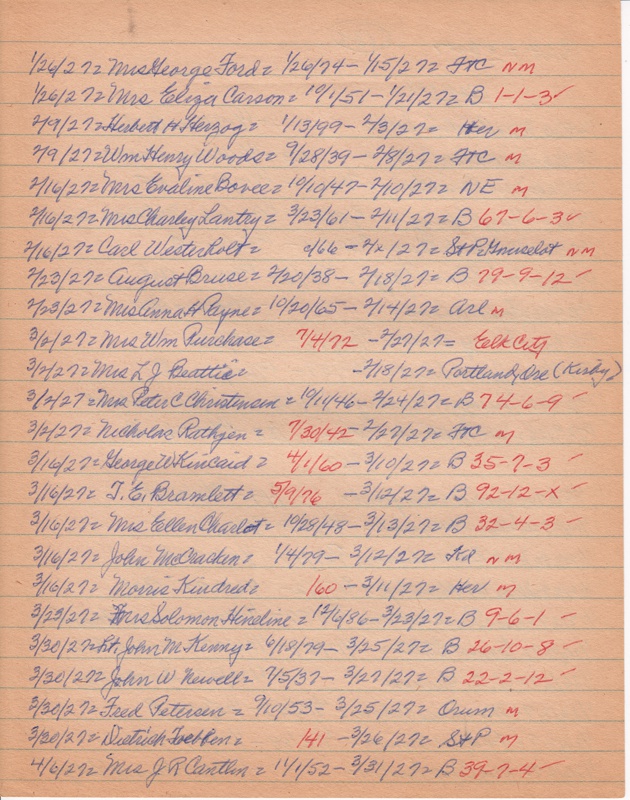 1/26/27= Mrs George Ford= 1/26/74- 1/15/27= FtC NM
1/26/27= Mrs Eliza Carson= 10/1/51- 1/21/27= B 1-1-3✓
2/9/27= Herbert H Herzog= 1/13/99- 2/3/27= Her M
2/9/27= Wm Henry Woods= 9/28/39- 2/8/27= FtC M
2/16/27= Mrs Evaline Bovee= 10/10/47- 2/10/27= NE M
2/16/27= Mrs Charley Lantry= 3/23/61- 2/11/27= B 67-6-3✓
2/16/27= Carl Westerholt= c/66- 2/x/27= St P NM
2/23/27= August Bruse= 2/20/38- 2/18/27= B 79-9-12✓
2/23/27= Mrs Anna H Payne= 10/20/65- 2/14/27= Arl M
3/2/27= Mrs Wm Purchase= 7/4/72 -2/27/27= Elk City
3/2/27= Mrs L J Beattie= -2/18/27= Portland, Ore (Kirby)
3/2/27= Mrs Peter C Christensen= 10/11/46- 2/24/27= B 74-6-9✓
3/2/27= Nicholas Rathjen= 7/30/42 2/27/27= FtC M
3/16/27= George W Kincaid= 4/1/60- 3/10/27= B 35-7-3✓
3/16/27= T. E. Bramlett= 5/9/76 -3/12/27= B 92-12-X✓
3/16/27= Mrs Ellen Charlot= 10/28/48- 3/13/27= B 32-4-3✓
3/16/27= John McCracken= 1/4/79- 3/12/27= NM
3/16/27= Morris Kindred= 160- 3/11/27= Her M
3/23/27= Mrs Solomon Hineline= 12/6/86- 3/23/27= B 9-6-1✓
3/30/27= Lt. John M Kenny= 6/18/79- 3/25/27= B 26-10-8✓
3/30/27= John W Newell= 7/5/37- 3/27/27= B 22-2-12✓
3/30/27= Fred Petersen= 9/10/53- 3/25/27= Orum M
3/30/27= Dietrich Toebben= 141 -3/26/27= St P M
4/6/27= Mrs J R Cantlin= 11/1/52- 3/31/27= B 39-7-4✓